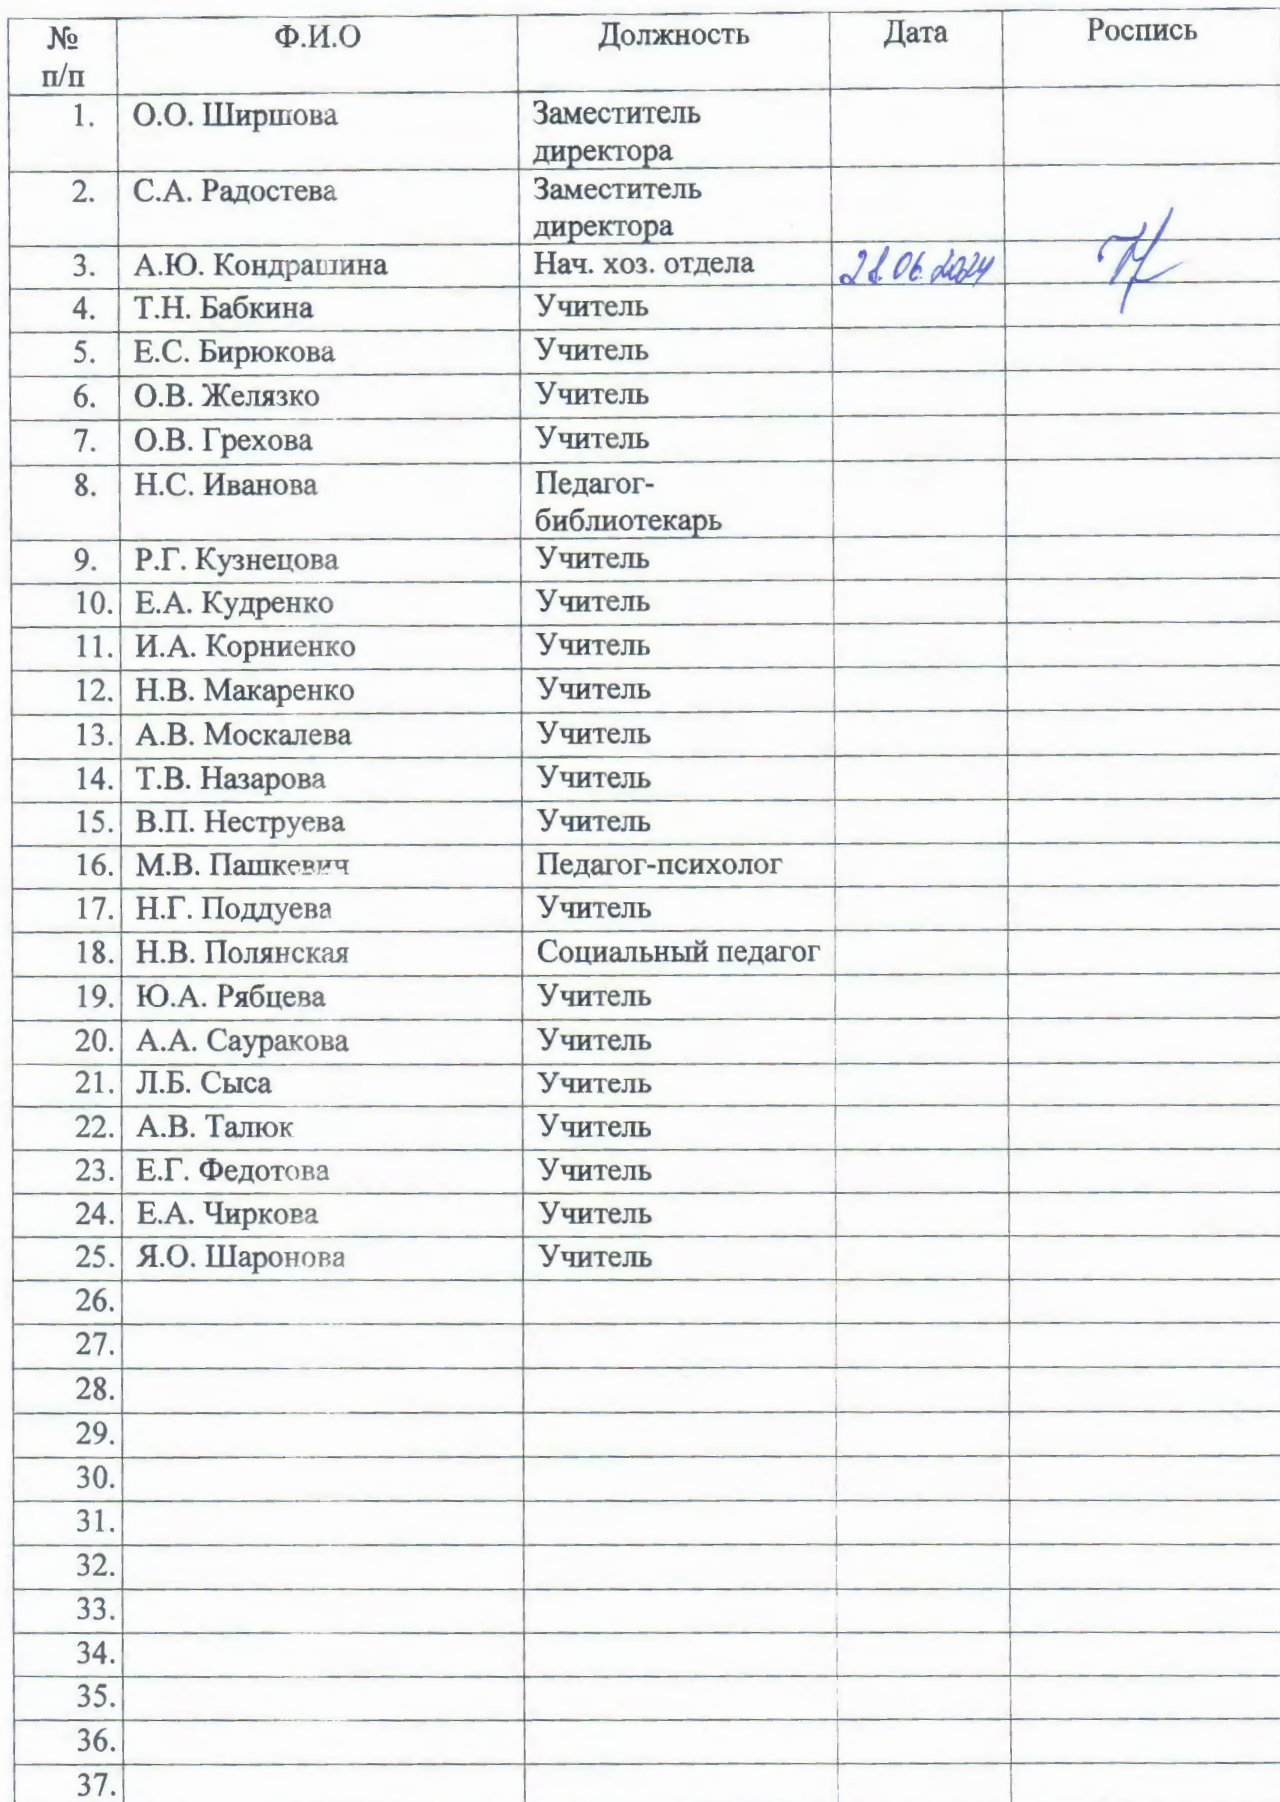 № п/п Ф.И.О Должность Дата Роспись
1. О.О. Ширшова Заместитель директора
2. С.А. Радостева Заместитель директора
3. А.Ю. Кондрашина Нач. хоз. отдела 28.06.2024
4. Т.Н. Бабкина Учитель
5. Е.С. Бирюкова Учитель
6. О.В. Желязко Учитель
7. О.В. Грехова Учитель
8. Н.С. Иванова Педагог-библиотекарь
9. Р.Г. Кузнецова Учитель
10. Е.А. Кудренко Учитель
11. И.А. Корниенко Учитель
12. Н.В. Макаренко Учитель
13. А.В. Москалева Учитель
14. Т.В. Назарова Учитель
15. В.П. Неструева Учитель
16. М.В. Пашкевич Педагог-психолог
17. Н.Г. Поддуева Учитель
18. Н.В. Полянская Социальный педагог
19. Ю.А. Рябцева Учитель
20. А.А. Сауракова Учитель
21. Л.Б. Сыса Учитель
22. А.В. Талюк Учитель
23. Е.Г. Федотова Учитель
24. Е.А. Чиркова Учитель
25. Я.О. Шаронова Учитель
26.
27.
28.
29.
30.
31.
32.
33.
34.
35.
36.
37.